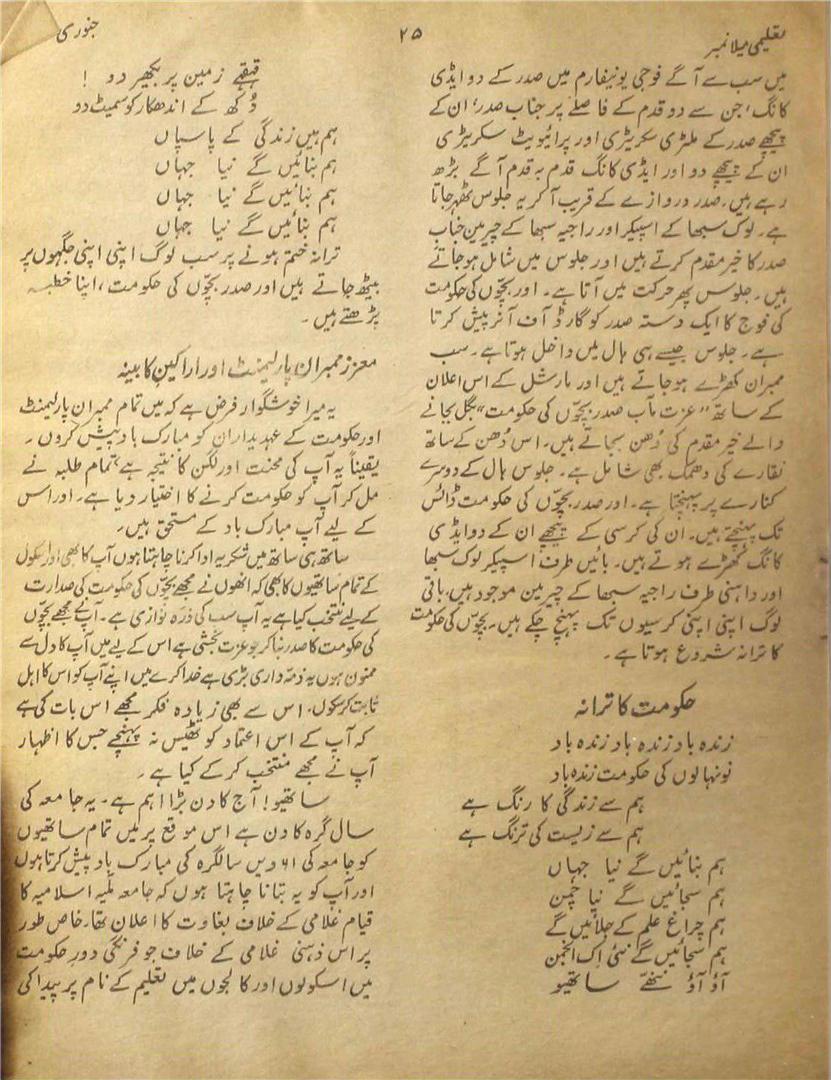 تعلیمی میلا نمبر
۲۵
جنوری
میں سب سے آگے فوجی یونیفارم میں صدر کے دو ایڈی
کانگ، جن سے دو قدم کے فاصلے پر جناب صدر، ان کے
پیچھے صدر کے ملٹری سکریٹری اور پرائیویٹ سکریٹری
ان کے پیچھے دو اور ایڈی کانگ قدم بہ قدم آگے بڑھ
رہے ہیں۔ صدر دروازے کے قریب آکر یہ جلوس ٹھہر جاتا
ہے۔ لوک سبھا کے اسپیکر اور راجیہ سبھا کے چیرمین جناب
صدر کا خیر مقدم کرتے ہیں اور جلوس میں شامل ہو جاتے
ہیں۔ جلوس پھر حرکت میں آتا ہے۔ اور بچّوں کی حکومت
کی فوج کا ایک دستہ صدر کو گارڈ آف آنر پیش کرتا
ہے۔ جلوس جیسے ہی ہال میں داخل ہوتا ہے۔ سب
ممبران کھڑے ہو جاتے ہیں اور مارشل کے اس اعلان
کے ساتھ "عزت مآب صدر بچّوں کی حکومت" بگل بجانے
والے خیر مقدم کی دُھن بجاتے ہیں۔ اس دُھن کے ساتھ
نقارے کی دھمک بھی شامل ہے۔ جلوس ہال کے دوسرے
کنارے پر پہنچتا ہے۔ اور صدر بچّوں کی حکومت ڈائس
تک پہنچتے ہیں۔ ان کی کرسی کے پیچھے ان کے دو ایڈی
کانگ کھڑے ہوتے ہیں۔ بائیں طرف اسپیکر لوک سبھا
اور داہنی طرف راجیہ سبھا کے چیرمین موجود ہیں، باقی
لوگ اپنی اپنی کرسیوں تک پہنچ چکے ہیں۔ بچّوں کی حکومت
کا ترانہ شروع ہوتا ہے۔
حکومت کا ترانہ
زندہ باد زندہ باد زندہ باد
نونہالوں کی حکومت زندہ باد
ہم سے زندگی کا رنگ ہے
ہم سے زیست کی ترنگ ہے
ہم بنائیں گے نیا جہاں
ہم سجائیں گے نیا چمن
ہم چراغ علم کے جلائیں گے
ہم سجائیں گے نئی اِک انجمن
آؤ آؤ ننھّے ساتھیو
قہقہے زمین پر بکھیر دو !
دُکھ کے اندھکار کو سمیٹ دو
ہم ہیں زندگی کے پاسباں
ہم بنائیں گے نیا جہاں
ہم بنائیں گے نیا جہاں
ہم بنائیں گے نیا جہاں
ترانہ ختم ہونے پر سب لوگ اپنی اپنی جگہوں پر
بیٹھ جاتے ہیں اور صدر بچّوں کی حکومت، اپنا خطبہ
پڑھتے ہیں۔
معزز ممبران پارلیمنٹ اور اراکینِ کابینہ
یہ میرا خوشگوار فرض ہے کہ میں تمام ممبران پارلیمنٹ
اور حکومت کے عہدیداران کو مبارک باد پیش کروں۔
یقیناً یہ آپ کی محنت اور لگن کا نتیجہ ہے، تمام طلبہ نے
مل کر آپ کو حکومت کرنے کا اختیار دیا ہے۔ اور اس
کے لیے آپ مبارک باد کے مستحق ہیں۔
ساتھ ہی ساتھ میں شکریہ ادا کرنا چاہتا ہوں آپ کا بھی اور اسکول
کے تمام ساتھیوں کا بھی کہ انھوں نے مجھے بچّوں کی حکومت کی صدارت
کے لیے منتخب کیا ہے یہ آپ سب کی ذرّہ نوازی ہے۔ آپنے مجھے بچّوں
کی حکومت کا صدر بنا کر جو عزت بخشی ہے اس کے لیے میں آپ کا دل سے
ممنون ہوں یہ ذمّہ داری بڑی ہے خدا کرے میں اپنے آپ کو اس کا اہل
ثابت کر سکوں۔ اس سے بھی زیادہ فکر مجھے اس بات کی ہے
کہ آپ کے اس اعتماد کو ٹھیس نہ پہنچے جس کا اظہار
آپ نے مجھے منتخب کر کے کیا ہے۔
ساتھیو! آج کا دن بڑا اہم ہے۔ یہ جامعہ کی
سال گرہ کا دن ہے اس موقع پر میں تمام ساتھیوں
کو جامعہ کی ۶۱ ویں سالگرہ کی مبارک باد پیش کرتا ہوں
اور آپ کو یہ بتانا چاہتا ہوں کہ جامعہ ملّیہ اسلامیہ کا
قیام غلامی کے خلاف بغاوت کا اعلان تھا۔ خاص طور
پر اس ذہنی غلامی کے خلاف جو فرنگی دورِ حکومت
میں اسکولوں اور کالجوں میں تعلیم کے نام پر پیدا کی